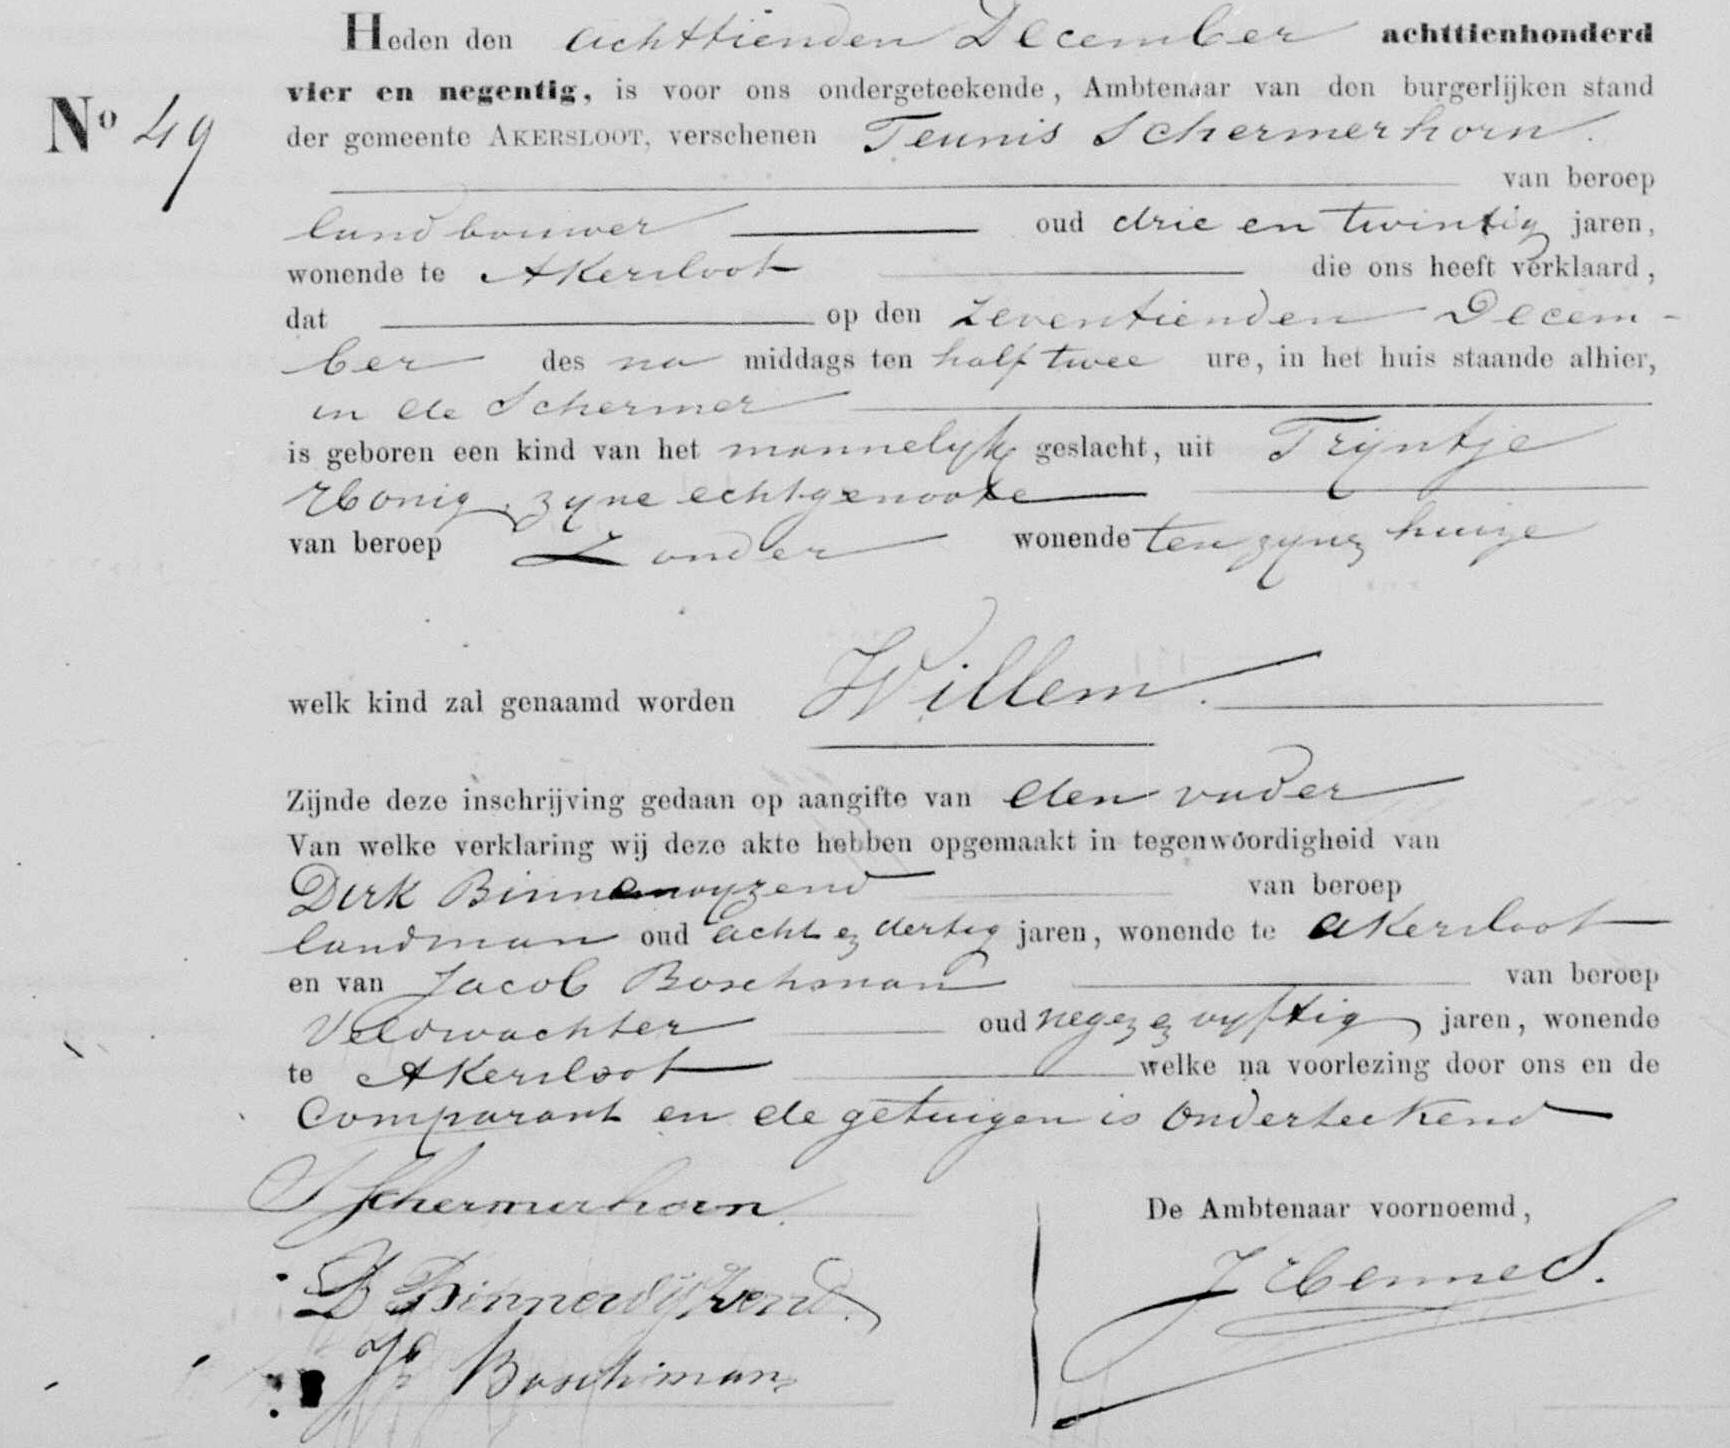 Heden den achttienden December achttienhonderd
vier en negentig, is voor ons ondergeteekende, Ambtenaar van den burgerlijken stand
No 49 der gemeente AKERSLOOT, verschenen Teunis Schermerhorn.
van beroep
landbouwer oud drie en twintig jaren,
wonende te Akersloot die ons heeft verklaard,
dat op den zeventienden Decem-
ber des na middags ten half twee ure, in het huis staande alhier,
in de Schermer
is geboren een kind van het mannelijk geslacht, uit Trijntje
Honig, zijne echtgenoote
van beroep Zonder wonende ten zijnen huize
welk kind zal genaamd worden Willem.
Zijnde deze inschrijving gedaan op aangifte van den vader
Van welke verklaring wij deze akte hebben opgemaakt in tegenwoordigheid van
Dirk Binnewijzend van beroep
landman oud acht en dertig jaren, wonende te Akersloot
en van Jacob Boschman van beroep
Veldwachter oud negen en vijftig jaren, wonende
te Akersloot welke na voorlezing door ons en de
Comparant en de getuigen is onderteekend
T Schermerhorn.
De Ambtenaar voornoemd,
D Binnewijzend.
J Hennes.
Jb Boschman